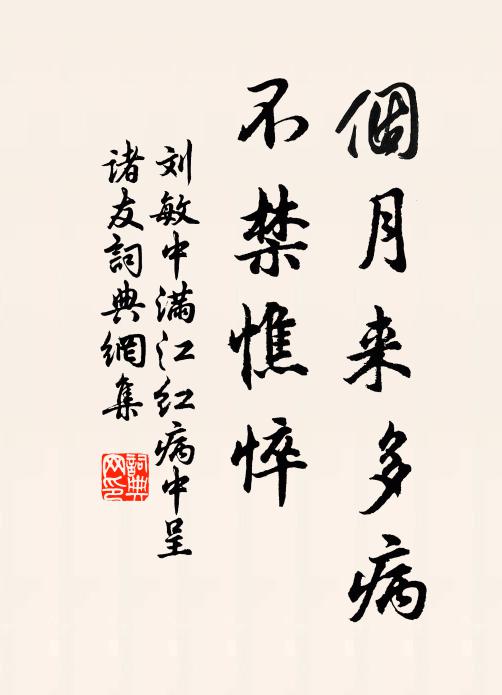 個月来多病
不禁憔悴
刘敏中满江红病中呈
诸友詞典網集
詞典网印